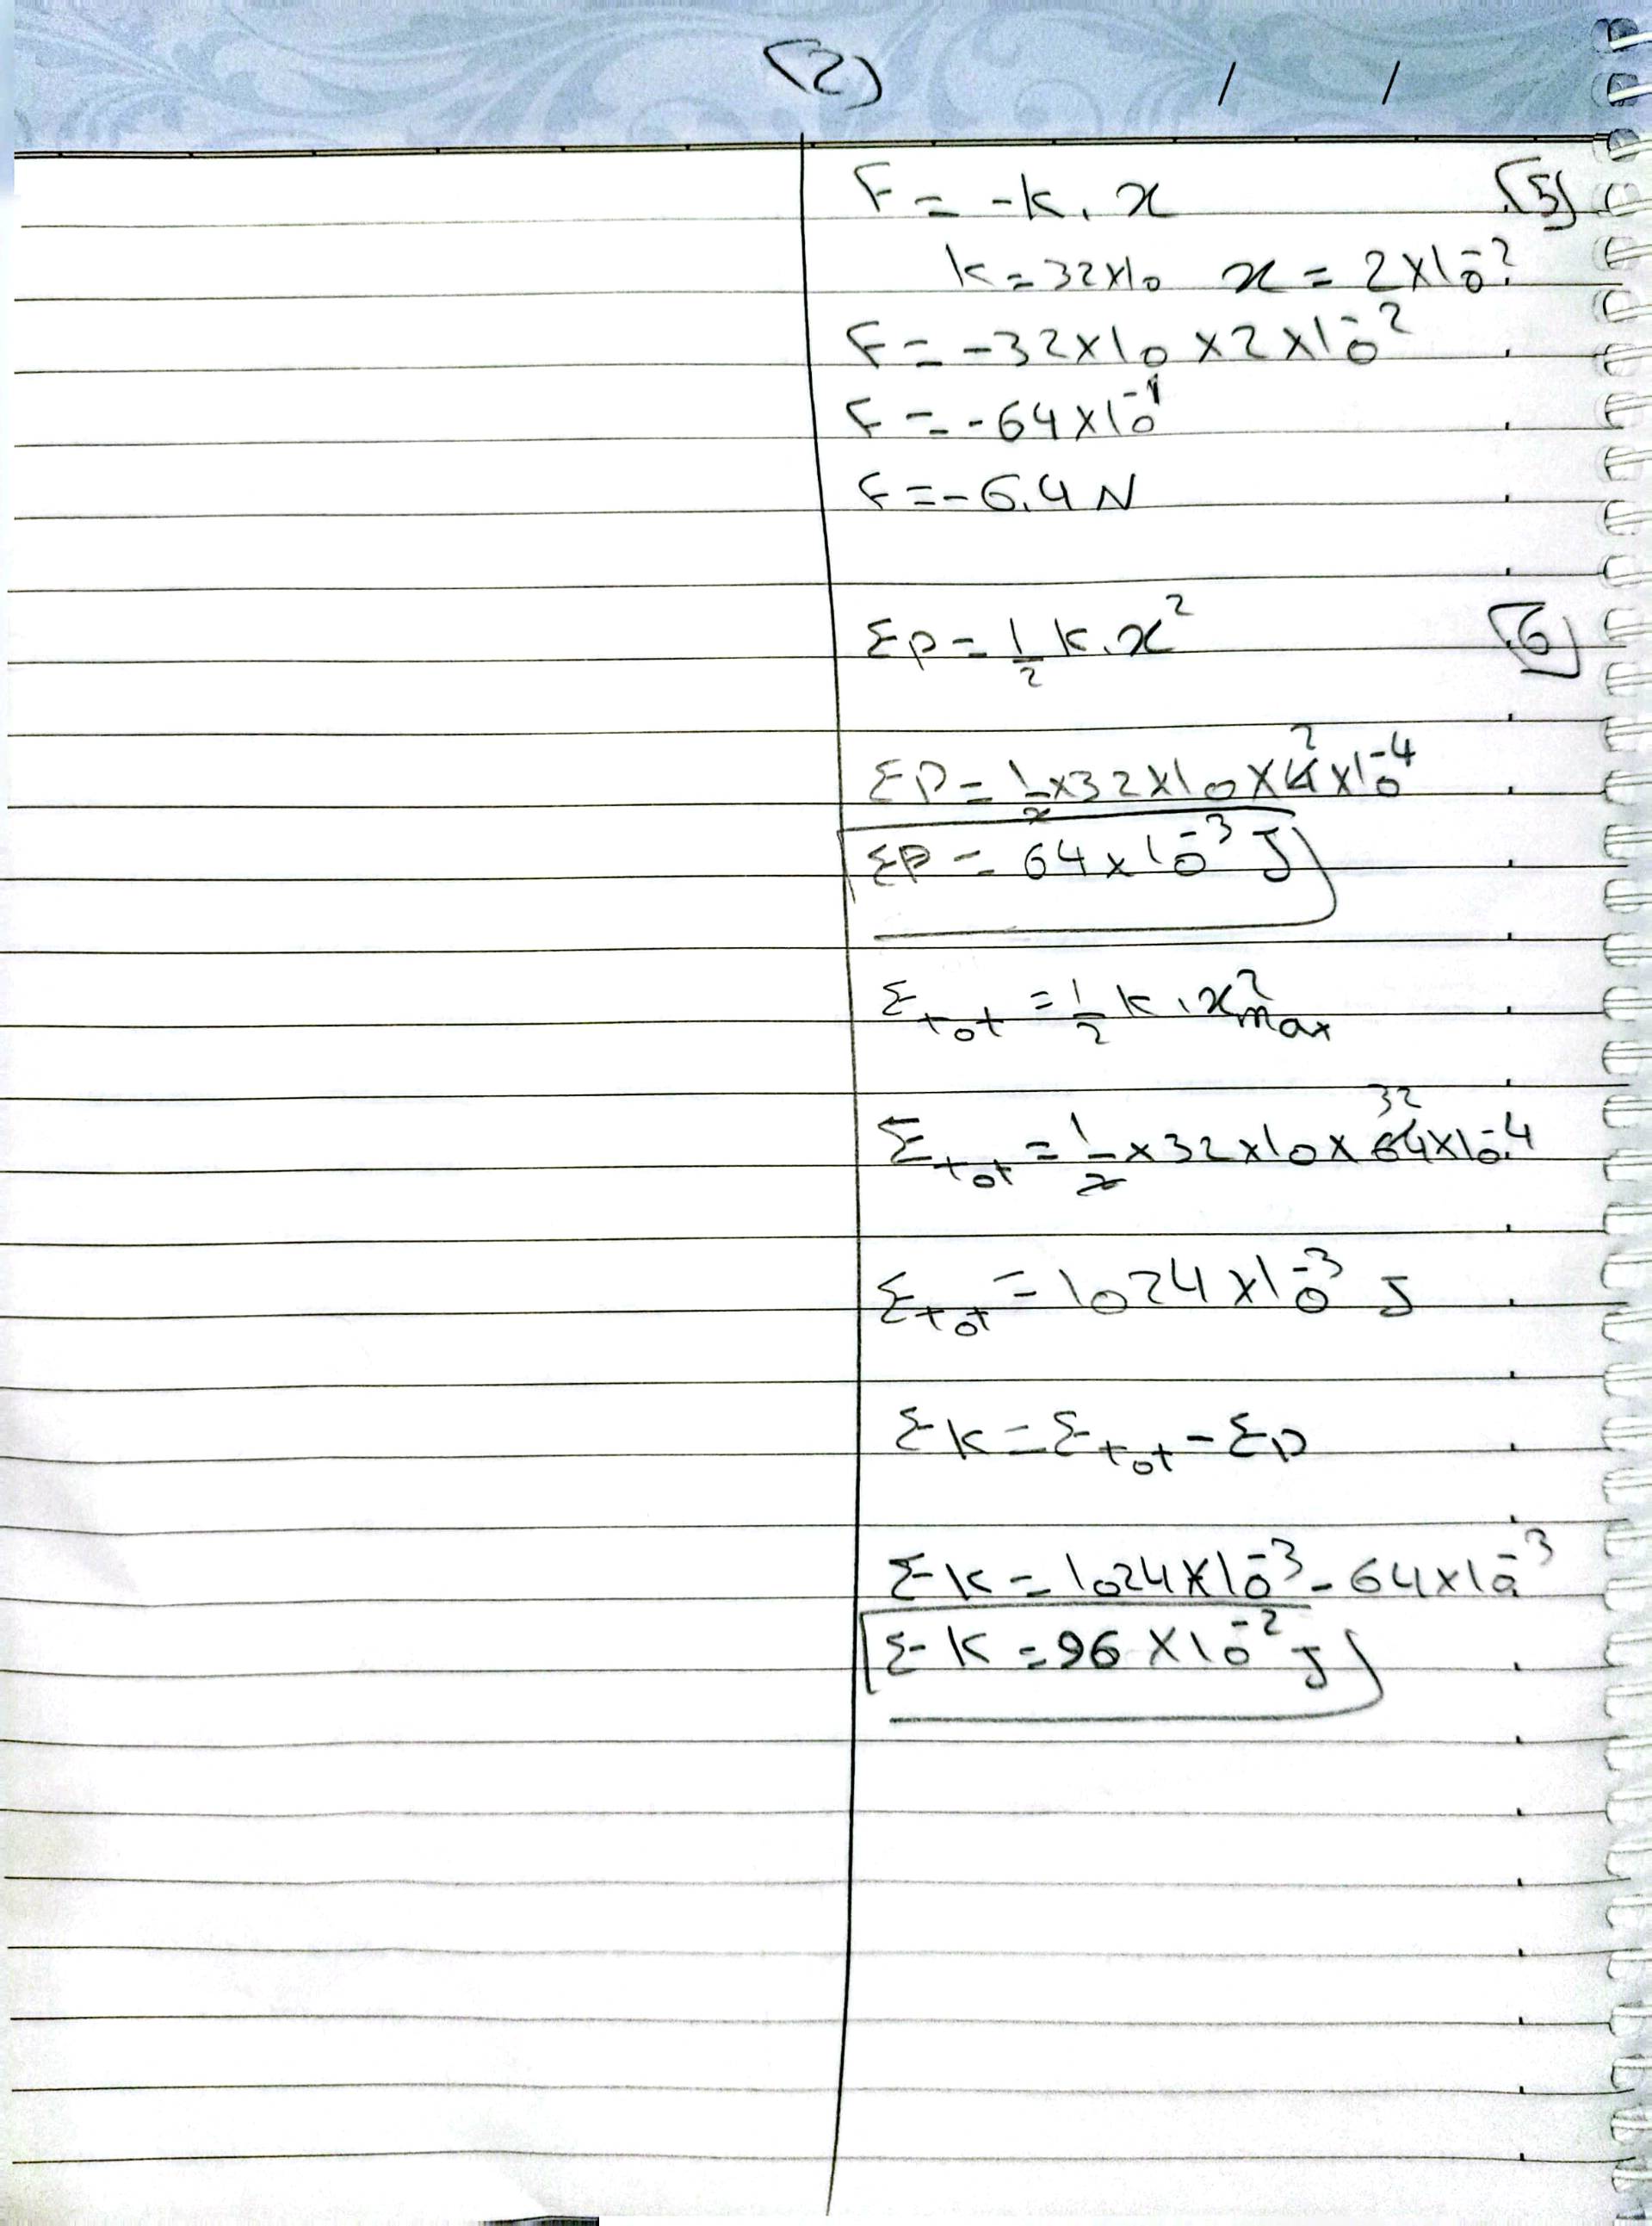 (2) / /
F = -k. x [5]
k = 32×10 x = 2×10⁻²
F = -32×10 × 2×10⁻²
F = -64×10⁻¹
F = -6.4 N
Ep = 1/2 k. x² [6]
Ep = 1/2 × 32×10 × 4 2 ×10⁻⁴
Ep = 64×10⁻³ J
E_tot = 1/2 k . x²max
E_tot = 1/2 × 32×10 × 64 32 ×10⁻⁴
E_tot = 1024×10⁻³ J
Ek = E_tot - Ep
Ek = 1024×10⁻³ - 64×10⁻³
Ek = 96×10⁻² J